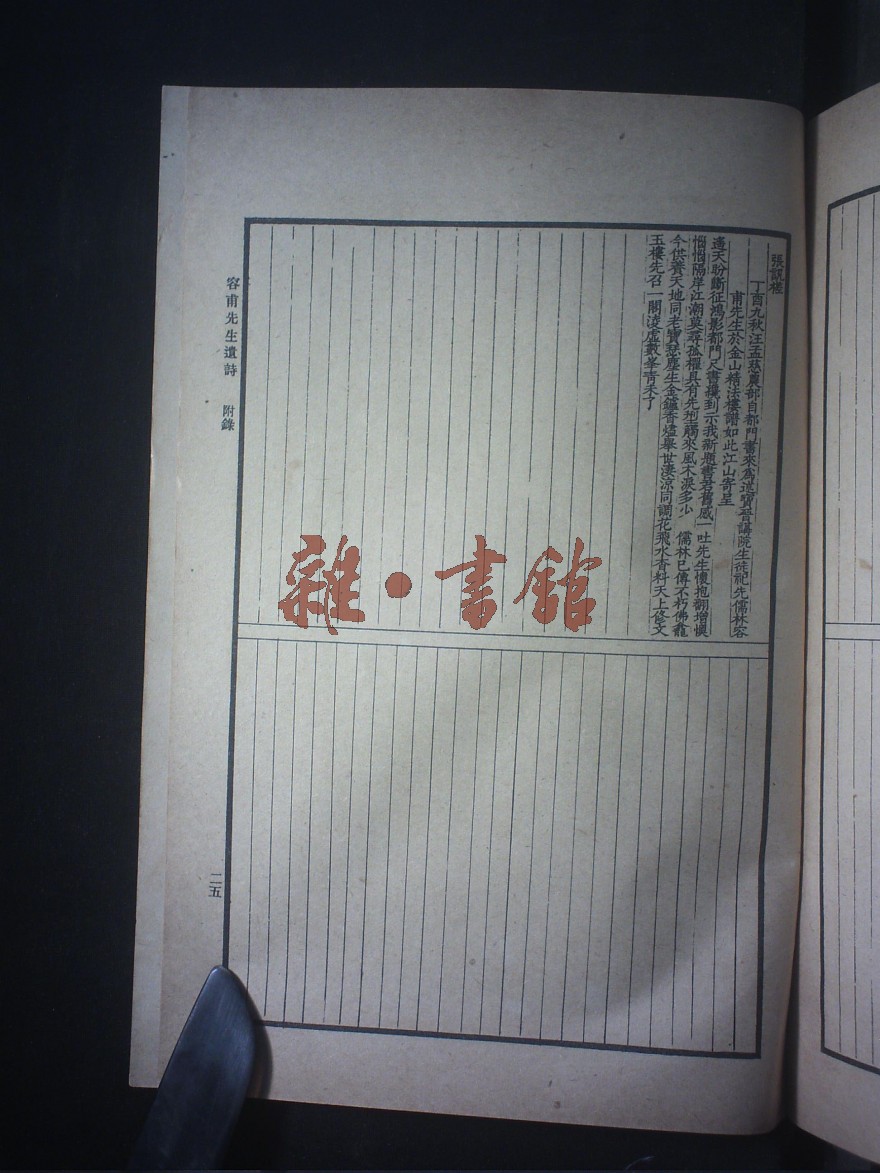 張
丁酉九秋汪孟慈農部自都門書來為選寶晉講院生徒祀先儒林容
甫先生於金山精法樓譜如此江山寄呈
遙天盼斷征鴻影都門尺書纔到示我新題書君舊感一吐先生懷抱翻增懊
惱悵隔岸江潮莫尋孤櫂具有先型觸來風木淚多少 儒林已傳不朽佛龕
今供養天地同老寶瑟塵生金鑪香燼舉世淒涼同調花飛水杳料天上修文
玉樓先召一闋淩虛數峯青未了
容甫先生遺詩 附錄
二五
雜·書館